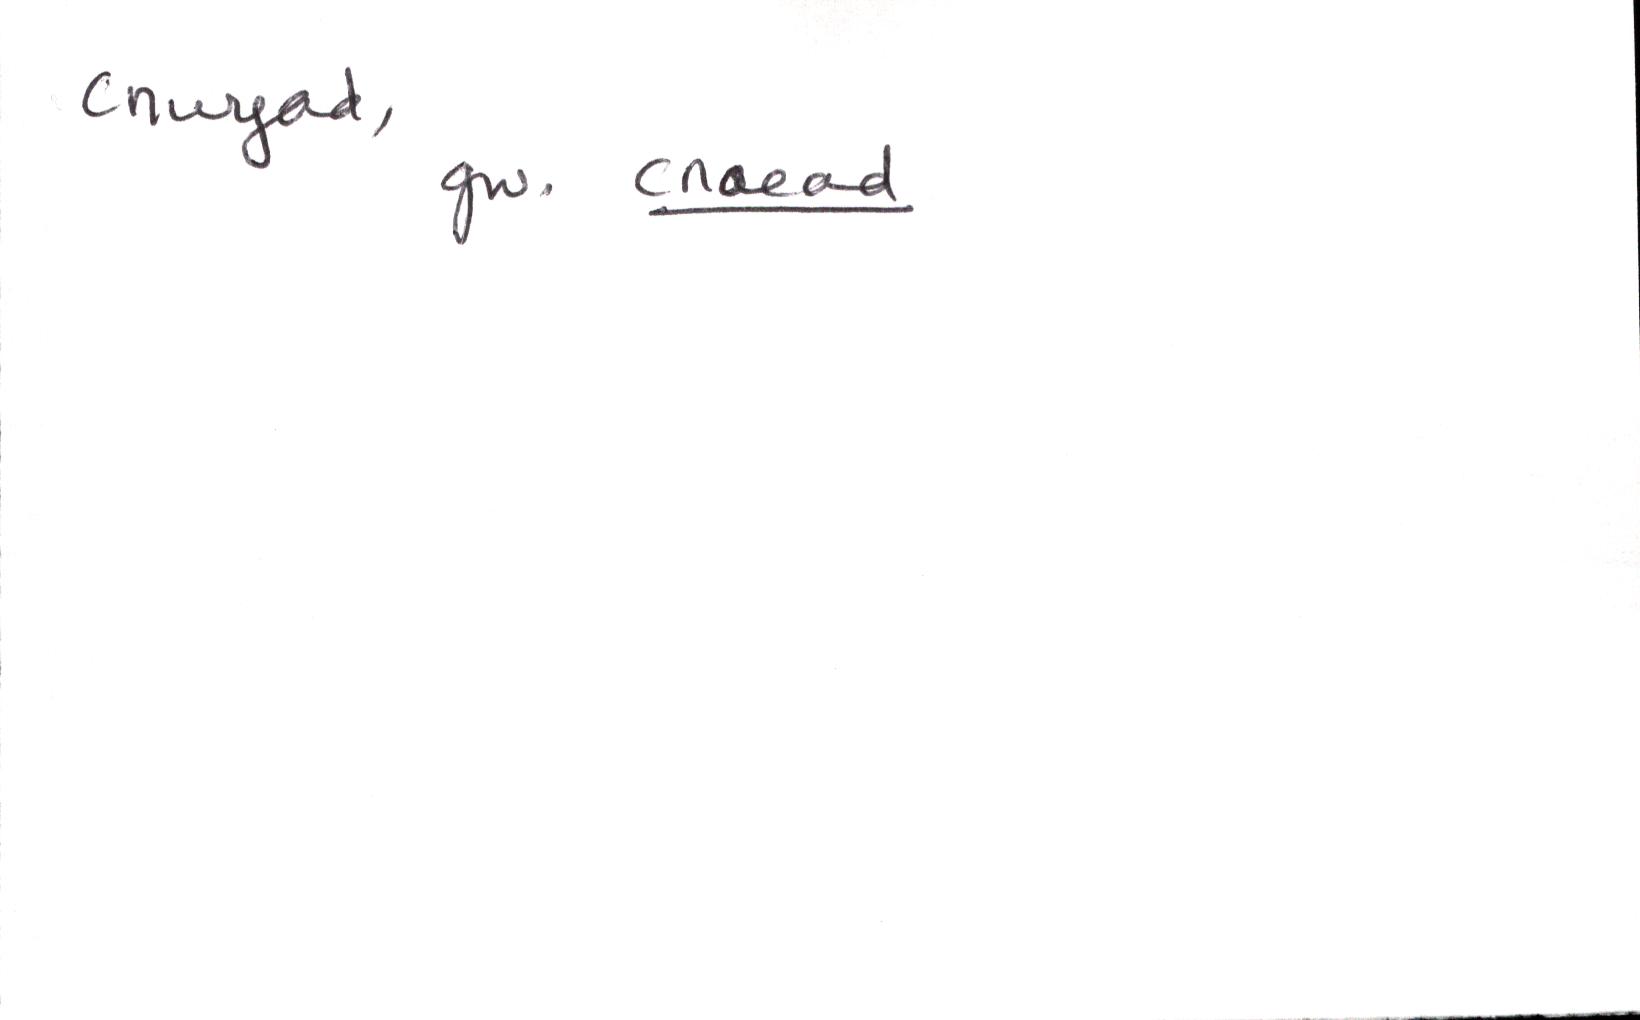 Cnwyad,
gw. cnoead